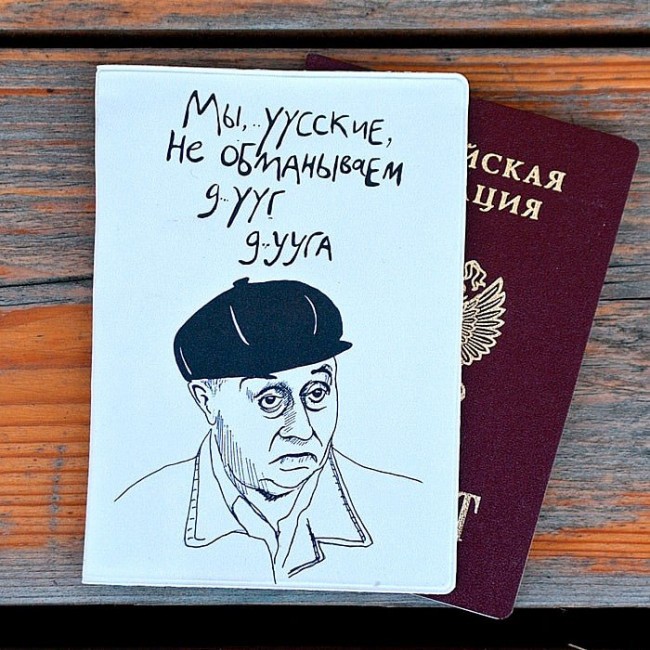 Мы,..уусские,
Не обманываем
д..ууг
д..ууга
йская
ация
т